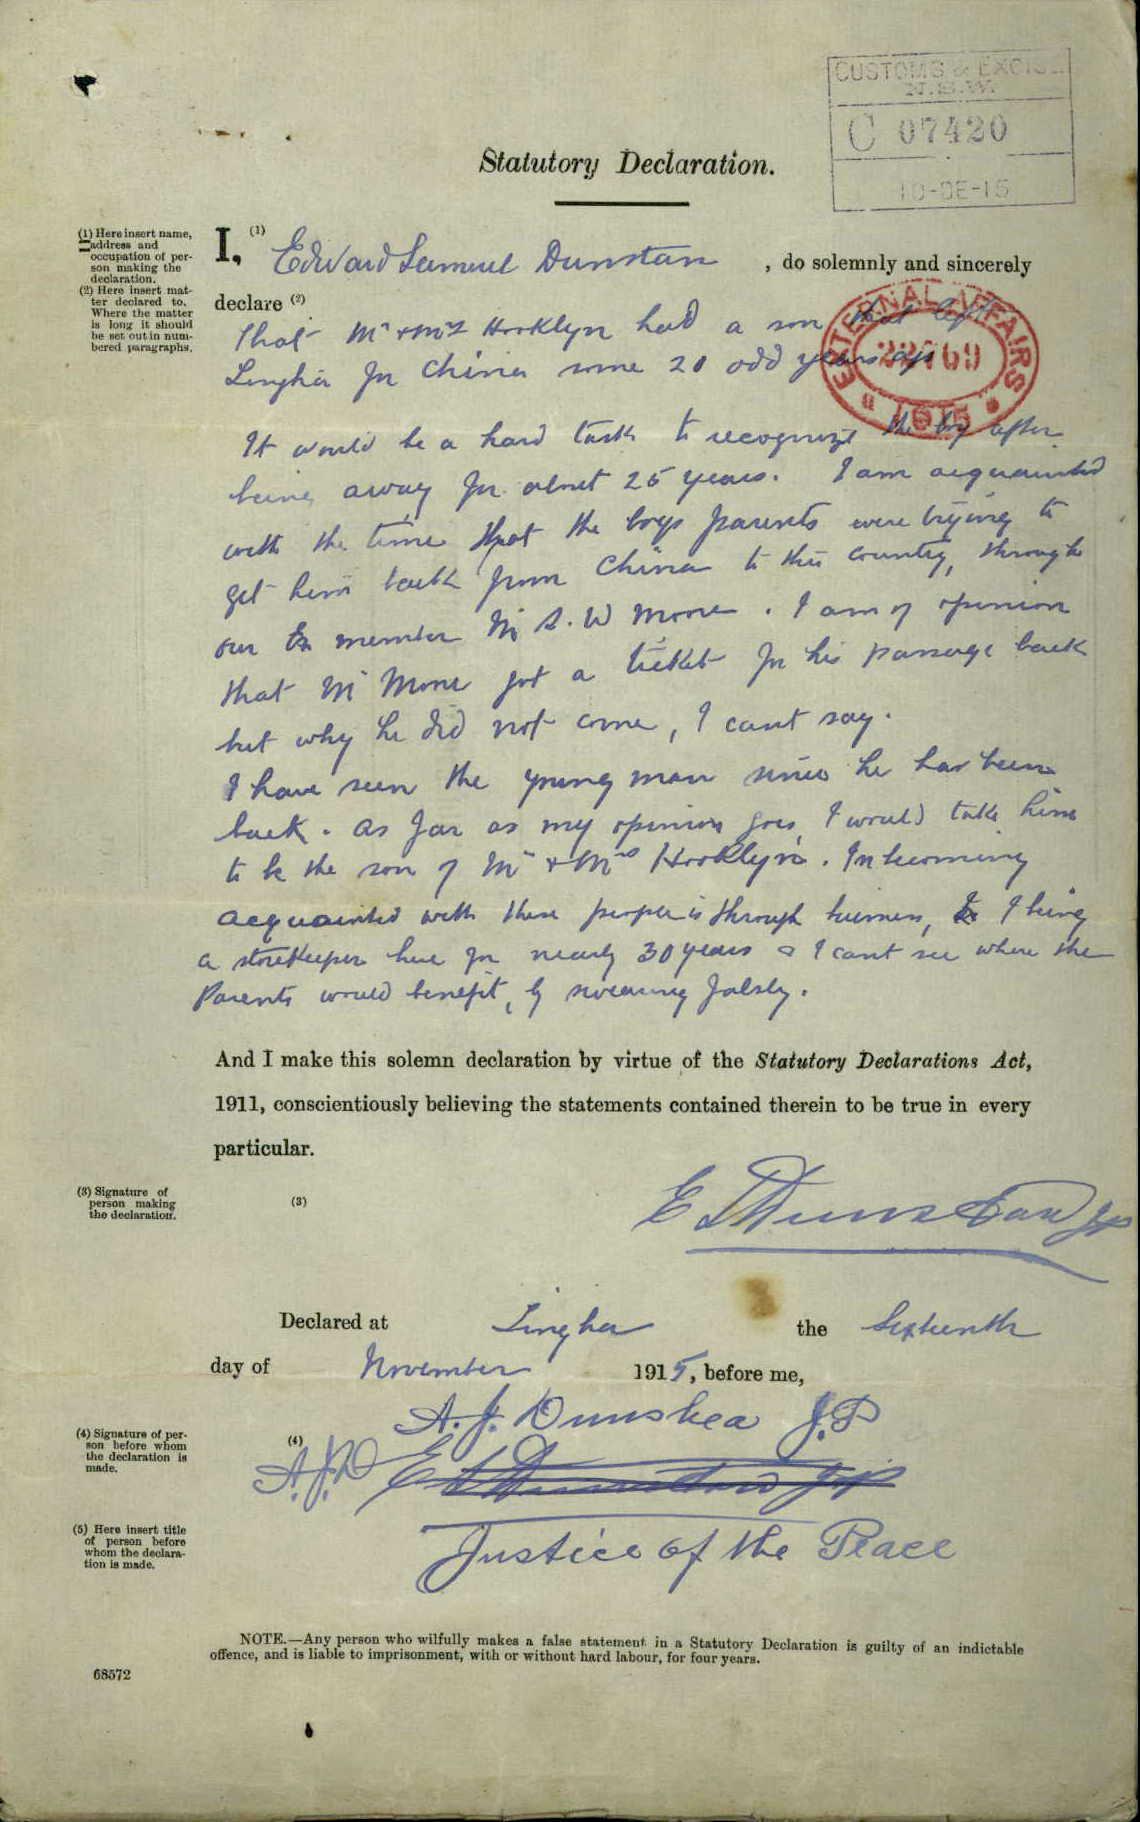 CUSTOMS & EXCISE
N.S.W.
C 07420
10-DE-15
Statutory Declaration.
(1) Here insert name,
address and
occupation of per-
son making the
declaration.
(2) Here insert mat-
ter declared to.
Where the matter
is long it should
be set out in num-
bered paragraphs.
I, (1) Edward Samuel Dunstan , do solemnly and sincerely
declare (2)
EXTERNAL AFFAIRS
1915
That Mr & Mrs Hooklyn had a son that left
Tingha for China some 20 odd years ago
It would be a hard task to recognize the boy after
being away for about 25 years. I am acquainted
with the time that the boys parents were trying to
get him back from China to this country, through
our Ex member Mr S. W Moore. I am of opinion
that Mr Moore got a ticket for his passage back
but why he did not come, I cant say.
I have seen the young man since he has been
back. As far as my opinion goes, I would take him
to be the son of Mr & Mrs Hooklyn. In becoming
acquainted with these people is through business, I being
a storekeeper here for nearly 30 years & I cant see where the
Parents would benefit, by swearing falsly.
And I make this solemn declaration by virtue of the Statutory Declarations Act,
1911, conscientiously believing the statements contained therein to be true in every
particular.
(3) Signature of
person making
the declaration.
(3)
E S Dunstan JP
Declared at Tingha the Sixteenth
day of November 1915, before me,
A. J. Dunshea J.P
(4) Signature of per-
son before whom
the declaration is
made.
(4)
A.J.D E S Dunstan JP
(5) Here insert title
of person before
whom the declara-
tion is made.
Justice of the Peace
NOTE.—Any person who wilfully makes a false statement in a Statutory Declaration is guilty of an indictable
offence, and is liable to imprisonment, with or without hard labour, for four years.
68572